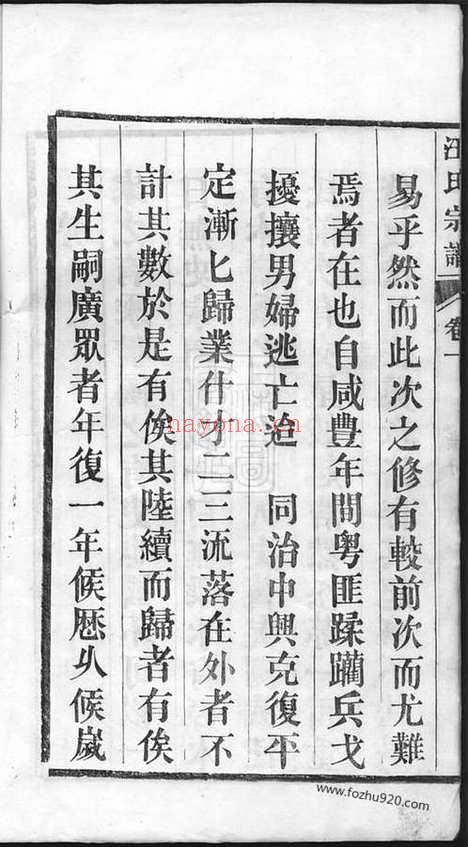 汪氏宗譜 卷一
易乎然而此次之修有較前次而尤難
焉者在也自咸豐年間粵匪蹂躪兵戈
擾攘男婦逃亡迨 同治中興克復平
定漸匕歸業什才二三流落在外者不
計其數於是有俟其陸續而歸者有俟
其生嗣廣眾者年復一年候歷乆候歲
nayona.cn
www.fozhu920.com